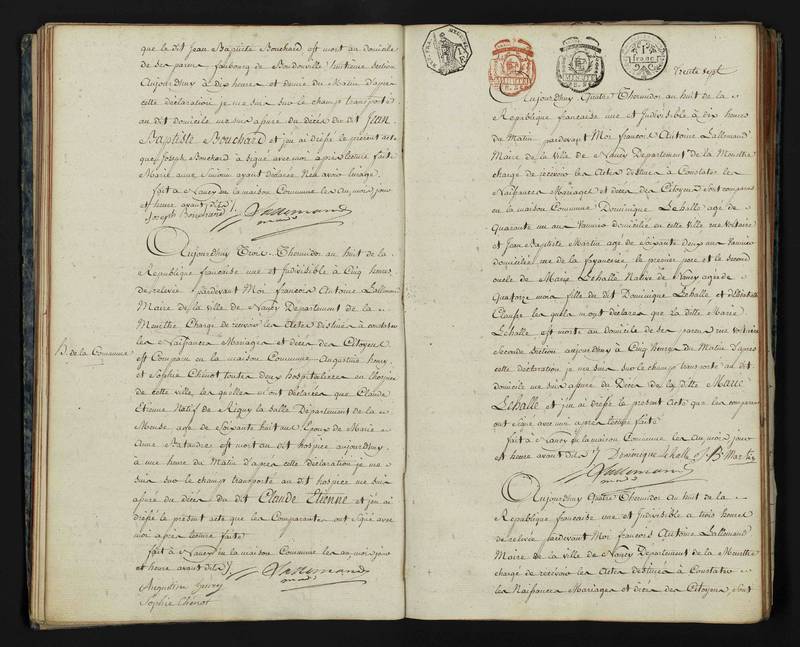 que le dit Jean Baptiste Bouchard est mort au domicile
de ses parens faubourg de Boudonville huitieme Section
Aujourdhuy à dix heures et demie du Matin d'apres
cette déclaration je me suis sur le champ transporté
au dit domicile me suis assuré du décès du dit Jean
Baptiste Bouchard et j'en ai dressé le présent acte
que Joseph Bouchard a signé avec moi après lecture faite
Marie anne ayant déclarée n'en avoir l'usage.
fait à Nancy en la maison Commune les an, mois, jour
et heure avant dits
Joseph Bouchard Lallemand
Aujourdhuy Trois Thermidor an huit de la
République française une et Indivisible à Cinq heures
de relevée pardevant Moi françois Antoine Lallemand
Maire de la ville de Nancy Département de la
Meurthe Chargé de recevoir les Actes destinés à constater
les Naissances Mariages et décès des Citoyens
B. de la Commune
est Comparu en la maison Commune Augustine henry
et Sophie Chenot toutes deux hospitalieres en l'hospice
de cette ville, lesquelles m'ont déclarées que Claude
Etienne Natif de Rigny la Salle Département de la
Meuse agé de Soixante huit ans Epoux de Marie
Anne est mort au dit hospice aujourdhuy
à une heure du Matin d'après cette déclaration je me
suis sur le champ transporté au dit hospice me suis
assuré du décès du dit Claude Etienne et j'en ai
dréssé le présent acte que les Comparantes ont signé avec
moi après lecture faite
fait à Nancy en la maison Commune les an, mois, jour
et heure avant dits
Lallemand
Augustine henry
Sophie Chenot
1
franc
Trente Sept
Aujourdhuy Quatre Thermidor an huit de la
République francaise une et Indivisible à dix heures
du Matin pardevant Moi françois Antoine Lallemand
Maire de la ville de Nancy Département de la Meurthe
chargé de recevoir les Actes destinés à Constater les
Naissances Mariages et décès des Citoyens sont comparus
en la maison Commune Dominique Lehalle agé de
Quarante un ans Vannier domicilié en cette ville rue Voltaire
et Jean Baptiste Martin agé de Soixante Deux ans Vannier
domicilié rue de la fayancerie, le premier pere et le second
oncle de Marie Lehalle Native de Nancy agée de
Quatorze mois fille de dit Dominique Lehalle et
lesquels m'ont déclarés que la ditte Marie
Lehalle est morte au domicile de ses parens rue Voltaire
Seconde Section aujourdhuy à Cinq heures du Matin d'après
cette déclaration je me suis sur le champ transporté au dit
domicile me suis assuré du Décès de la ditte Marie
Lehalle et j'en ai dréssé le present Acte que les comparans
ont signé avec moi après lecture faite
fait à Nancy en la maison Commune les An, mois, jour
et heure avant dits Dominique Lehalle J B Martin
Lallemand
Aujourdhuy Quatre Thermidor an huit de la
République française une et Indivisible à trois heures
de relevée pardevant Moi françois Antoine Lallemand
Maire de la ville de Nancy Département de la Meurthe
chargé de recevoir les Actes destinés à Constater
les Naissances Mariages et décès des Citoyens, sont